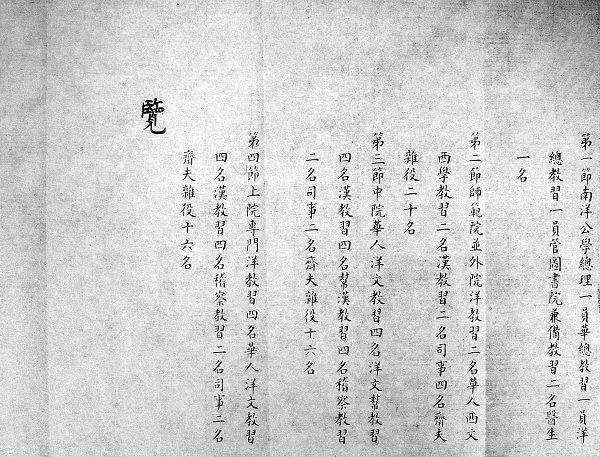 第一節南洋公學總理一員華總教習一員洋
總教習一員管圖書院兼備教習二名醫生
一名
第二節師範院並外院洋教習二名華人西文
西學教習二名漢教習二名司事四名齊夫
雜役二十名
第三節中院華人洋文教習四名洋文幫教習
四名漢教習四名幫漢教習四名稽察教習
二名司事二名齊夫雜役十六名
第四節上院專門洋教習四名華人洋文教習
四名漢教習四名稽察教習二名司事二名
齊夫雜役十六名
覽